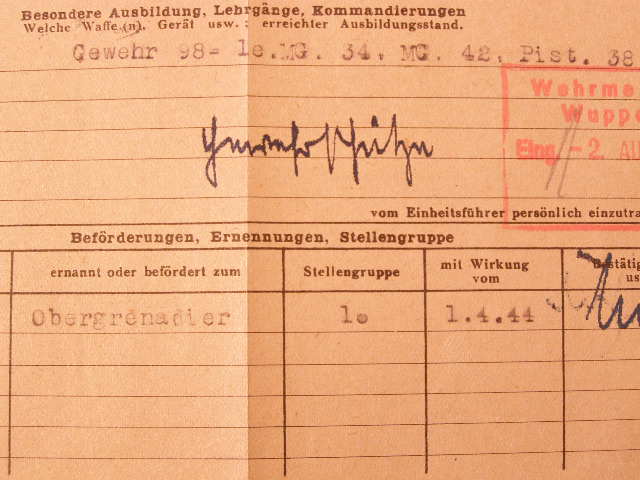 Besondere Ausbildung, Lehrgänge, Kommandierungen
Welche Waffe(n), Gerät usw.: erreichter Ausbildungsstand.
Gewehr 98- le.MG. 34, MG. 42, Pist. 38
Wehrme
Wuppe
Eing. - 2. AU
Gewehrschütze
vom Einheitsführer persönlich einzutra
Beförderungen, Ernennungen, Stellengruppe
ernannt oder befördert zum
Stellengruppe
mit Wirkung vom
Bestätig
us
Obergrenadier
1.4.44